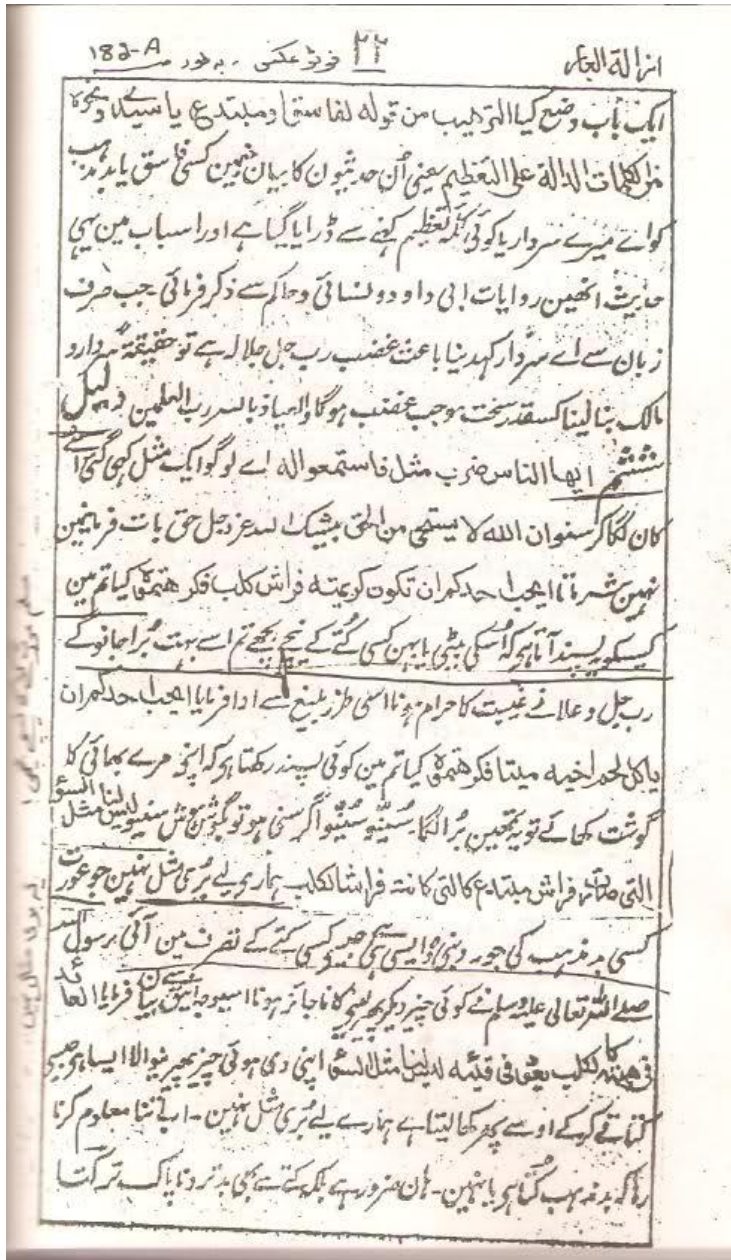 ازالة العار ۲۲ فوٹو عکسی ۔ بہ طور 182-A
ایک باب وضع کیا الترھیب من قولہ لفاسق او مبتدع یا سیدی و نحوہ
من الکلمات الدالة علی التعظیم یعنی ان حدیثوں کا بیان جنمین کسی فاسق یا بدمذہب
کو اے میرے سردار یا کوئی کلمہ تعظیم کہنے سے ڈرایا گیا ہے اور اس باب مین یہی
حدیث انھین روایات ابی داود و نسائی و حاکم سے ذکر فرمائی ۔ جب صرف
زبان سے اے سردار کہدینا باعث غضب رب جل جلالہ ہے تو حقیقۃً سردار و
مالک بنا لینا کسقدر سخت موجب غضب ہوگا والعیاذ باللہ رب العلمین دلیل
ششم ایھا الناس ضرب مثل فاستمعوا لہ اے لوگو ایک مثل کہی گئی اسے
کان لگا کر سنو ان اللہ لا یستحی من الحق بیشک اللہ عزوجل حق بات فرمانیمین
نہین شرماتا ایحب احدکم ان تکون کریمتہ فراش کلب فکرھتموہ کیا تم مین
کیسکو یہ پسند آتا ہو کہ اسکی بیٹی یا بہن کسی کتے کے نیچے بچھے تم اسے بہت برا جانو گے
رب جل وعلا نے غیبت کا حرام ہونا اسی طرز بلیغ سے ادا فرمایا ایحب احدکم ان
یاکل لحم اخیہ میتا فکرھتموہ کیا تم مین کوئی پسند رکھتا ہو کہ اپنے مرے بھائی کا
گوشت کھائے تو یہ تمھین برا لگا سنیو سنیو اگر سنی ہو تو بگوش ہوش سنو لیس لنا مثل السوء
التی صارت فراش مبتدع کالتی کانت فراشا لکلب ہماری لیے بری مثل نہین جو عورت
کسی بدمذہب کی جورو بنی وہ ایسی ہی ہے جیسے کسی کتے کے تصرف مین آئی رسول اللہ
صلے اللہ تعالی علیہ وسلم نے کوئی چیز دیکر پھیر لینے کا ناجائز ہونا اسی وجہ انیق سے بیان فرمایا العائد
فی ھبتہ کالکلب یعود فی قیئہ لیس لنا مثل السوء اپنی دی ہوئی چیز پھیرنیوالا ایسا ہی جیسے
کتا قے کرکے اوسے پھر کھا لیتا ہے ہمارے لیے بری مثل نہین ۔ اب اتنا معلوم کرنا
رہا کہ بدمذہب کتا ہے یا نہین ۔ ہان ضرور ہے بلکہ کتے سے بھی بدتر و ناپاک تر کتا